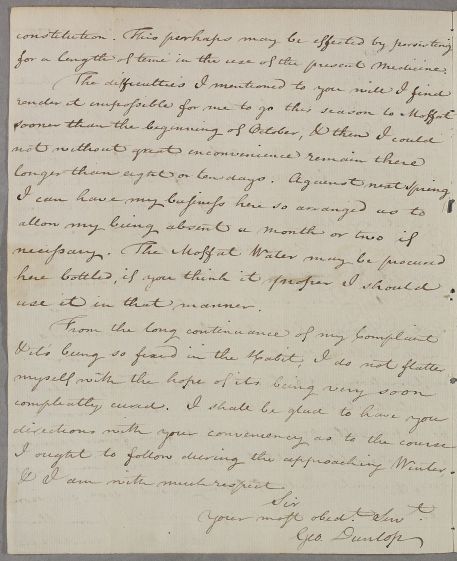 constitution. This perhaps may be effected by persisting
for a length of time in the use of the present Medicine.
The difficulties I mentioned to you will I find
render it impossible for me to go this season to Moffat
sooner than the beginning of October, & then I could
not without great inconvenience remain there
longer than eight or ten days. Against next Spring
I can have my business here so arranged as to
allow my being absent a month or two if
necessary. The Moffat Water may be procured
here bottled, if you think it proper I should
use it in that manner.
From the long continuance of my Complaint
& its being so fixed in the Habit, I do not flatter
myself with the hope of its being very soon
compleatly cured. I shall be glad to have your
directions with your conveniency as to the course
I ought to follow during the approaching Winter.
& I am with much respect
Sir
Your most obedt. Servt.
Geo Dunlop